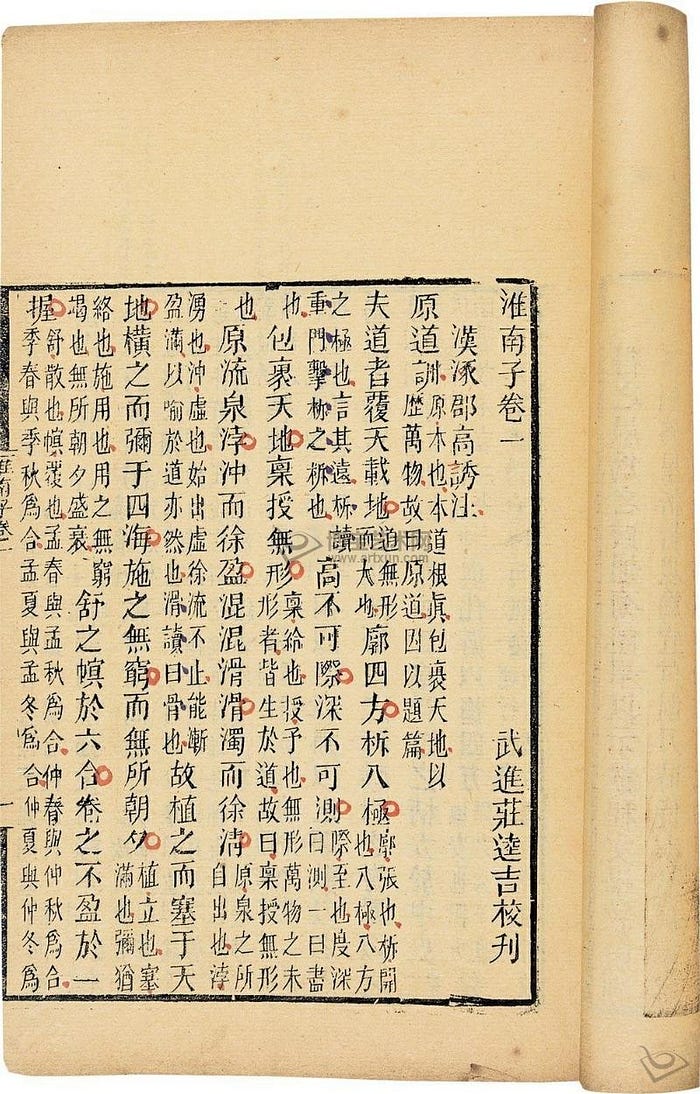 淮南子卷一 武進莊逵吉校刊
漢涿郡高誘注
原道訓原本也本道根真包裹天地以歷萬物故曰原道因以題篇
夫道者覆天載地道無形而大也廓四方柝八極廓張也柝開也八極八方
之極也言其遠柝讀重門擊柝之柝也高不可際深不可測際至也度深曰測一曰盡
也包裹天地稟授無形稟給也授予也無形萬物之未形者皆生於道故曰稟授無形
也原流泉浡沖而徐盈混混滑滑濁而徐清原泉之所自出也浡
湧也沖虛也始出虛徐流不止能漸盈滿以喻於道亦然也滑讀曰骨也故植之而塞于天
地橫之而彌于四海施之無窮而無所朝夕植立也塞滿也彌猶
絡也施用也用之無窮竭也無所朝夕盛衰舒之幎於六合卷之不盈於一
握舒散也幎覆也孟春與孟秋爲合仲春與仲秋爲合季春與季秋爲合孟夏與孟冬爲合仲夏與仲冬爲
淮南子卷一
一
www.artxun.com